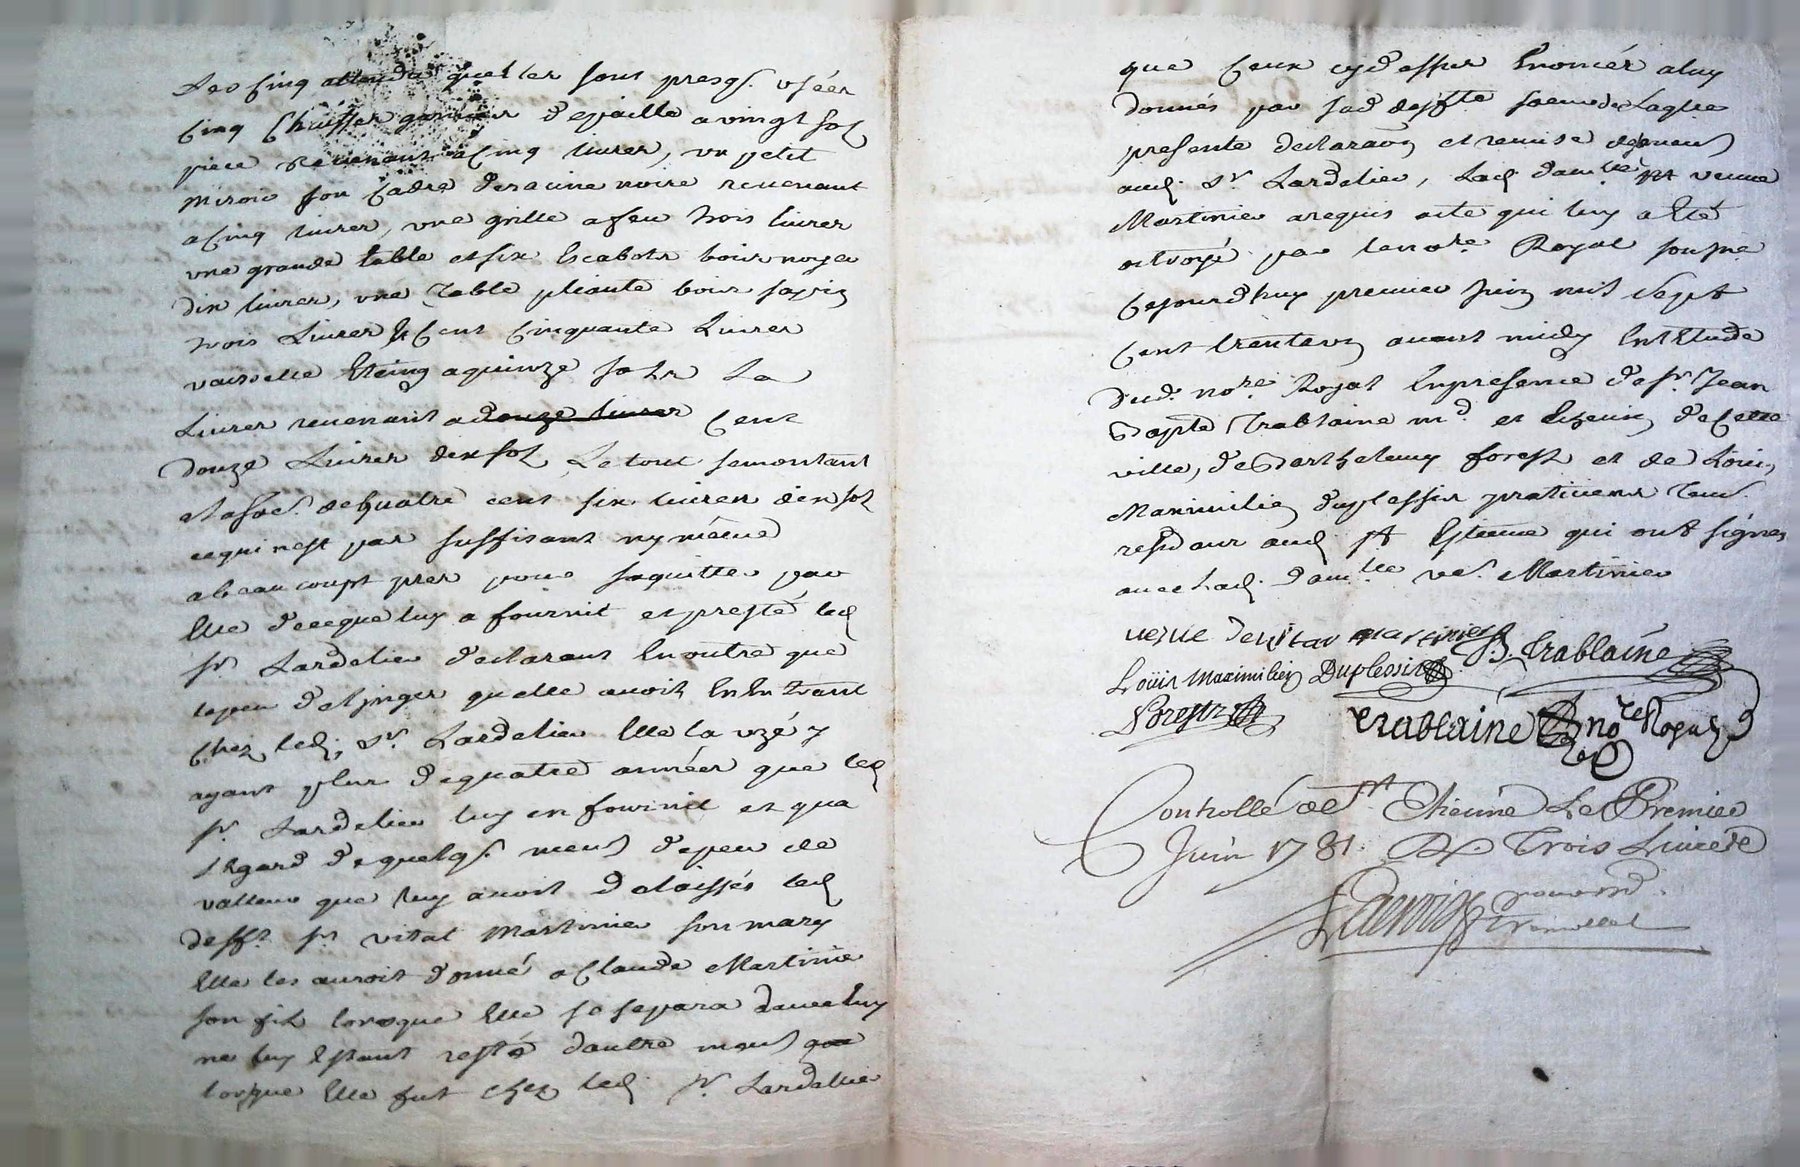 les cinq attendu quelles sont presq. uséés
cinq Chaisses garnies depaille a vingt sol
piece Revenant a cinq livres, un petit
miroir son cadre deracine noire revenant
a cinq livres, une grille a feu trois livres
une grande table et six Escabots bois noyer
dix livres, une Table pliante bois sapin
trois Livres & Cent Cinquante Livres
vaisselle Eteing a quinze sols La
Livres revenant a douze livres Cent
douze Livres dix sol, Le tout semontant
alasoe. dequatre cent six livres dix sol
cequi nest pas suffisant ny méme
abeaucoupt pres pour saquitter par
Elle decequeluy a fournit et presté led
sr. Lardelier declarant En outre que
lepeu delinges quelle avoit En Entrant
Chez led. sr. Lardelier Elle la uzé y
ayant plus dequatre années que led
sr. Lardelier luy en fournit et qua
l'Egard dequelqs. meubs depeu de
valleur que luy avoit delaissés led
defft. sr. vital Martinier son mary
Elle les auroit donné a Claude Martinier
son fils lorsque Elle se separa daveeluy
ne luy Estant resté dautre meubs que
lorsque Elle fut chez led. sr. Lardellier
que ceux cydessus Enoncés aluy
donnés par lad deffte soeur de Laqlle
presente declaraon et remise
aud. sr. Lardelier, Lad. damlle veuve
Martinier arequis acte qui luy a Eté
octroyé par lenore. Royal sousne
Cejourdhuy premier Juin mil sept
Cent trente un avant midy En l'Etude
dud. nore. Royal Enpresence desr. Jean
Bapte. Trablaine md. et Echevin de Cette
ville, de Barthelemy forest et de Louis
Maximilien duplessis praticiens tous.
residans aud. St Estienne qui ont signés
avec Lad. damlle. ve. Martinier
veuve de vitar martinier J.B. Trablaine
Loüis Maximilien Duplessis
Forest
trablaine nore Royal
Controllé a St Etienne Le Premier
Juin 1731. Rx. Trois Livre de